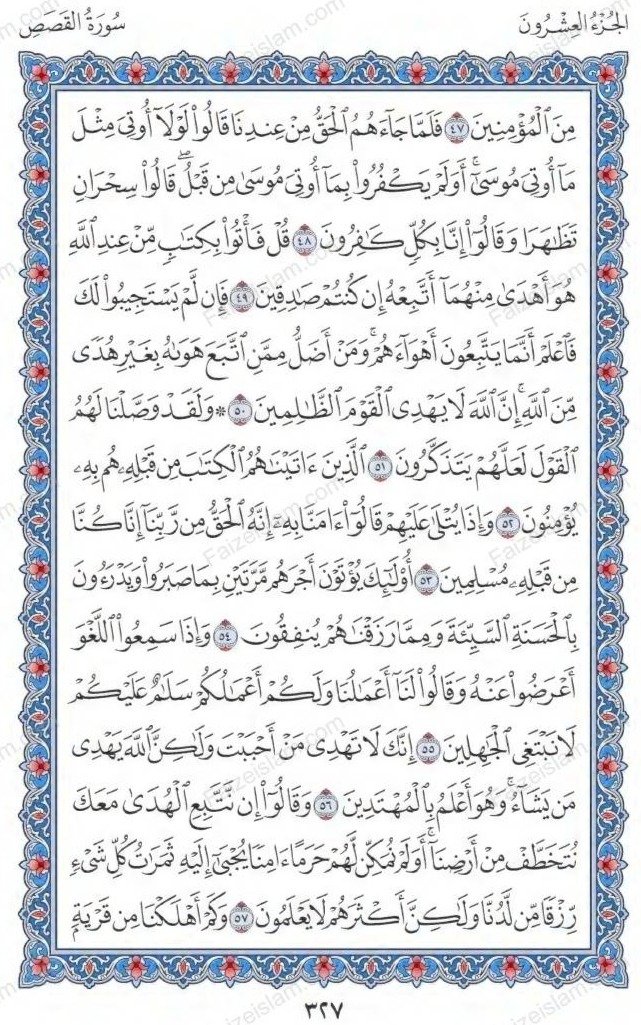 الجُزْءُ العِشْرُونَ
سُورَةُ القَصَصِ
مِنَ ٱلْمُؤْمِنِينَ ٤٧ فَلَمَّا جَآءَهُمُ ٱلْحَقُّ مِنْ عِندِنَا قَالُوا۟ لَوْلَآ أُوتِىَ مِثْلَ
مَآ أُوتِىَ مُوسَىٰٓ ۚ أَوَلَمْ يَكْفُرُوا۟ بِمَآ أُوتِىَ مُوسَىٰ مِن قَبْلُ ۖ قَالُوا۟ سِحْرَانِ
تَظَـٰهَرَا وَقَالُوٓا۟ إِنَّا بِكُلٍّ كَـٰفِرُونَ ٤٨ قُلْ فَأْتُوا۟ بِكِتَـٰبٍ مِّنْ عِندِ ٱللَّهِ
هُوَ أَهْدَىٰ مِنْهُمَآ أَتَّبِعْهُ إِن كُنتُمْ صَـٰدِقِينَ ٤٩ فَإِن لَّمْ يَسْتَجِيبُوا۟ لَكَ
فَٱعْلَمْ أَنَّمَا يَتَّبِعُونَ أَهْوَآءَهُمْ ۚ وَمَنْ أَضَلُّ مِمَّنِ ٱتَّبَعَ هَوَىٰهُ بِغَيْرِ هُدًى
مِّنَ ٱللَّهِ ۚ إِنَّ ٱللَّهَ لَا يَهْدِى ٱلْقَوْمَ ٱلظَّـٰلِمِينَ ٥٠ ۞ وَلَقَدْ وَصَّلْنَا لَهُمُ
ٱلْقَوْلَ لَعَلَّهُمْ يَتَذَكَّرُونَ ٥١ ٱلَّذِينَ ءَاتَيْنَـٰهُمُ ٱلْكِتَـٰبَ مِن قَبْلِهِۦ هُم بِهِۦ
يُؤْمِنُونَ ٥٢ وَإِذَا يُتْلَىٰ عَلَيْهِمْ قَالُوٓا۟ ءَامَنَّا بِهِۦٓ إِنَّهُ ٱلْحَقُّ مِن رَّبِّنَآ إِنَّا كُنَّا
مِن قَبْلِهِۦ مُسْلِمِينَ ٥٣ أُو۟لَـٰٓئِكَ يُؤْتَوْنَ أَجْرَهُم مَّرَّتَيْنِ بِمَا صَبَرُوا۟ وَيَدْرَءُونَ
بِٱلْحَسَنَةِ ٱلسَّيِّئَةَ وَمِمَّا رَزَقْنَـٰهُمْ يُنفِقُونَ ٥٤ وَإِذَا سَمِعُوا۟ ٱللَّغْوَ
أَعْرَضُوا۟ عَنْهُ وَقَالُوا۟ لَنَآ أَعْمَـٰلُنَا وَلَكُمْ أَعْمَـٰلُكُمْ سَلَـٰمٌ عَلَيْكُمْ
لَا نَبْتَغِى ٱلْجَـٰهِلِينَ ٥٥ إِنَّكَ لَا تَهْدِى مَنْ أَحْبَبْتَ وَلَـٰكِنَّ ٱللَّهَ يَهْدِى
مَن يَشَآءُ ۚ وَهُوَ أَعْلَمُ بِٱلْمُهْتَدِينَ ٥٦ وَقَالُوٓا۟ إِن نَّتَّبِعِ ٱلْهُدَىٰ مَعَكَ
نُتَخَطَّفْ مِنْ أَرْضِنَآ ۚ أَوَلَمْ نُمَكِّن لَّهُمْ حَرَمًا ءَامِنًا يُجْبَىٰٓ إِلَيْهِ ثَمَرَٰتُ كُلِّ شَىْءٍ
رِّزْقًا مِّن لَّدُنَّا وَلَـٰكِنَّ أَكْثَرَهُمْ لَا يَعْلَمُونَ ٥٧ وَكَمْ أَهْلَكْنَا مِن قَرْيَةٍۭ
٣٢٧
Faizeislam.com